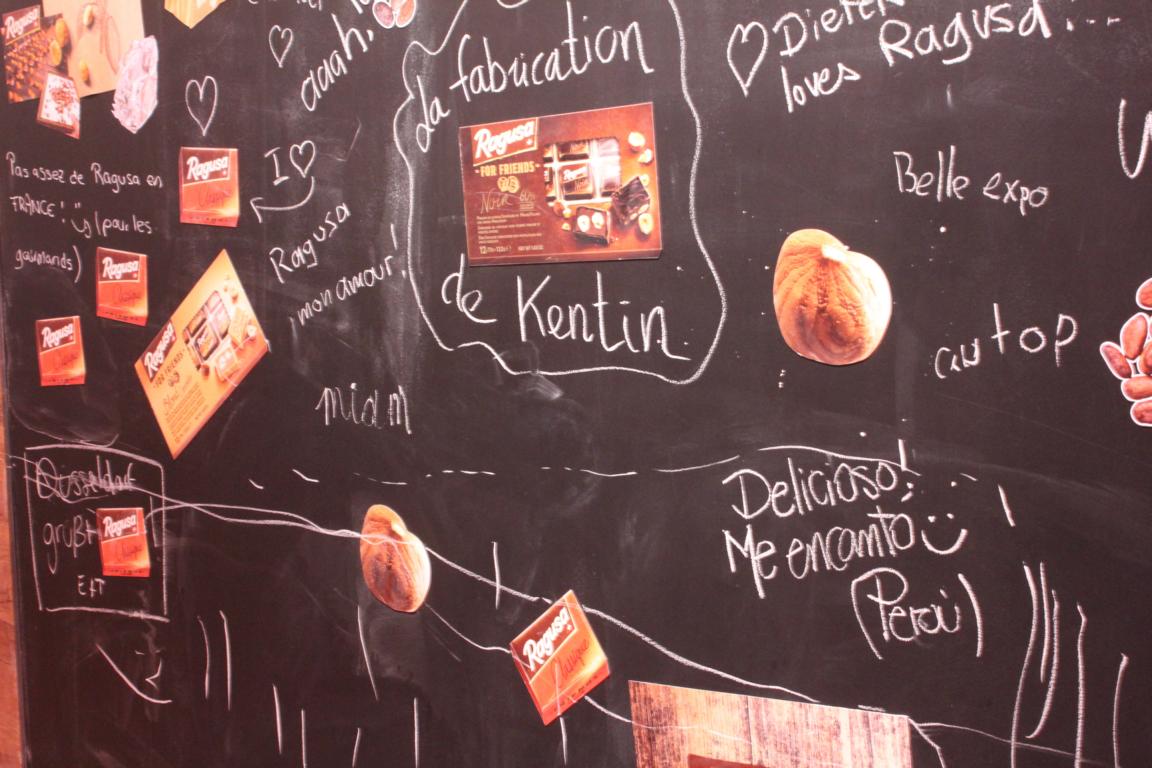 aaah!
La fabrication
Ragusa
FOR FRIENDS
Noir 60%
de Kentin
Dieter
loves Ragusa!...
Belle expo
au top
Pas assez de Ragusa en
FRANCE! (pour les
gourmands)
Ragusa
Classique
I
Ragusa
mon amour!
Ragusa
Classique
Ragusa
Classique
Ragusa
FOR FRIENDS
miam
Düsseldorf
grüßt
Ragusa
Classique
Delicioso!
Me encanto
(Perú)
Ragusa
Classique
Ragusa